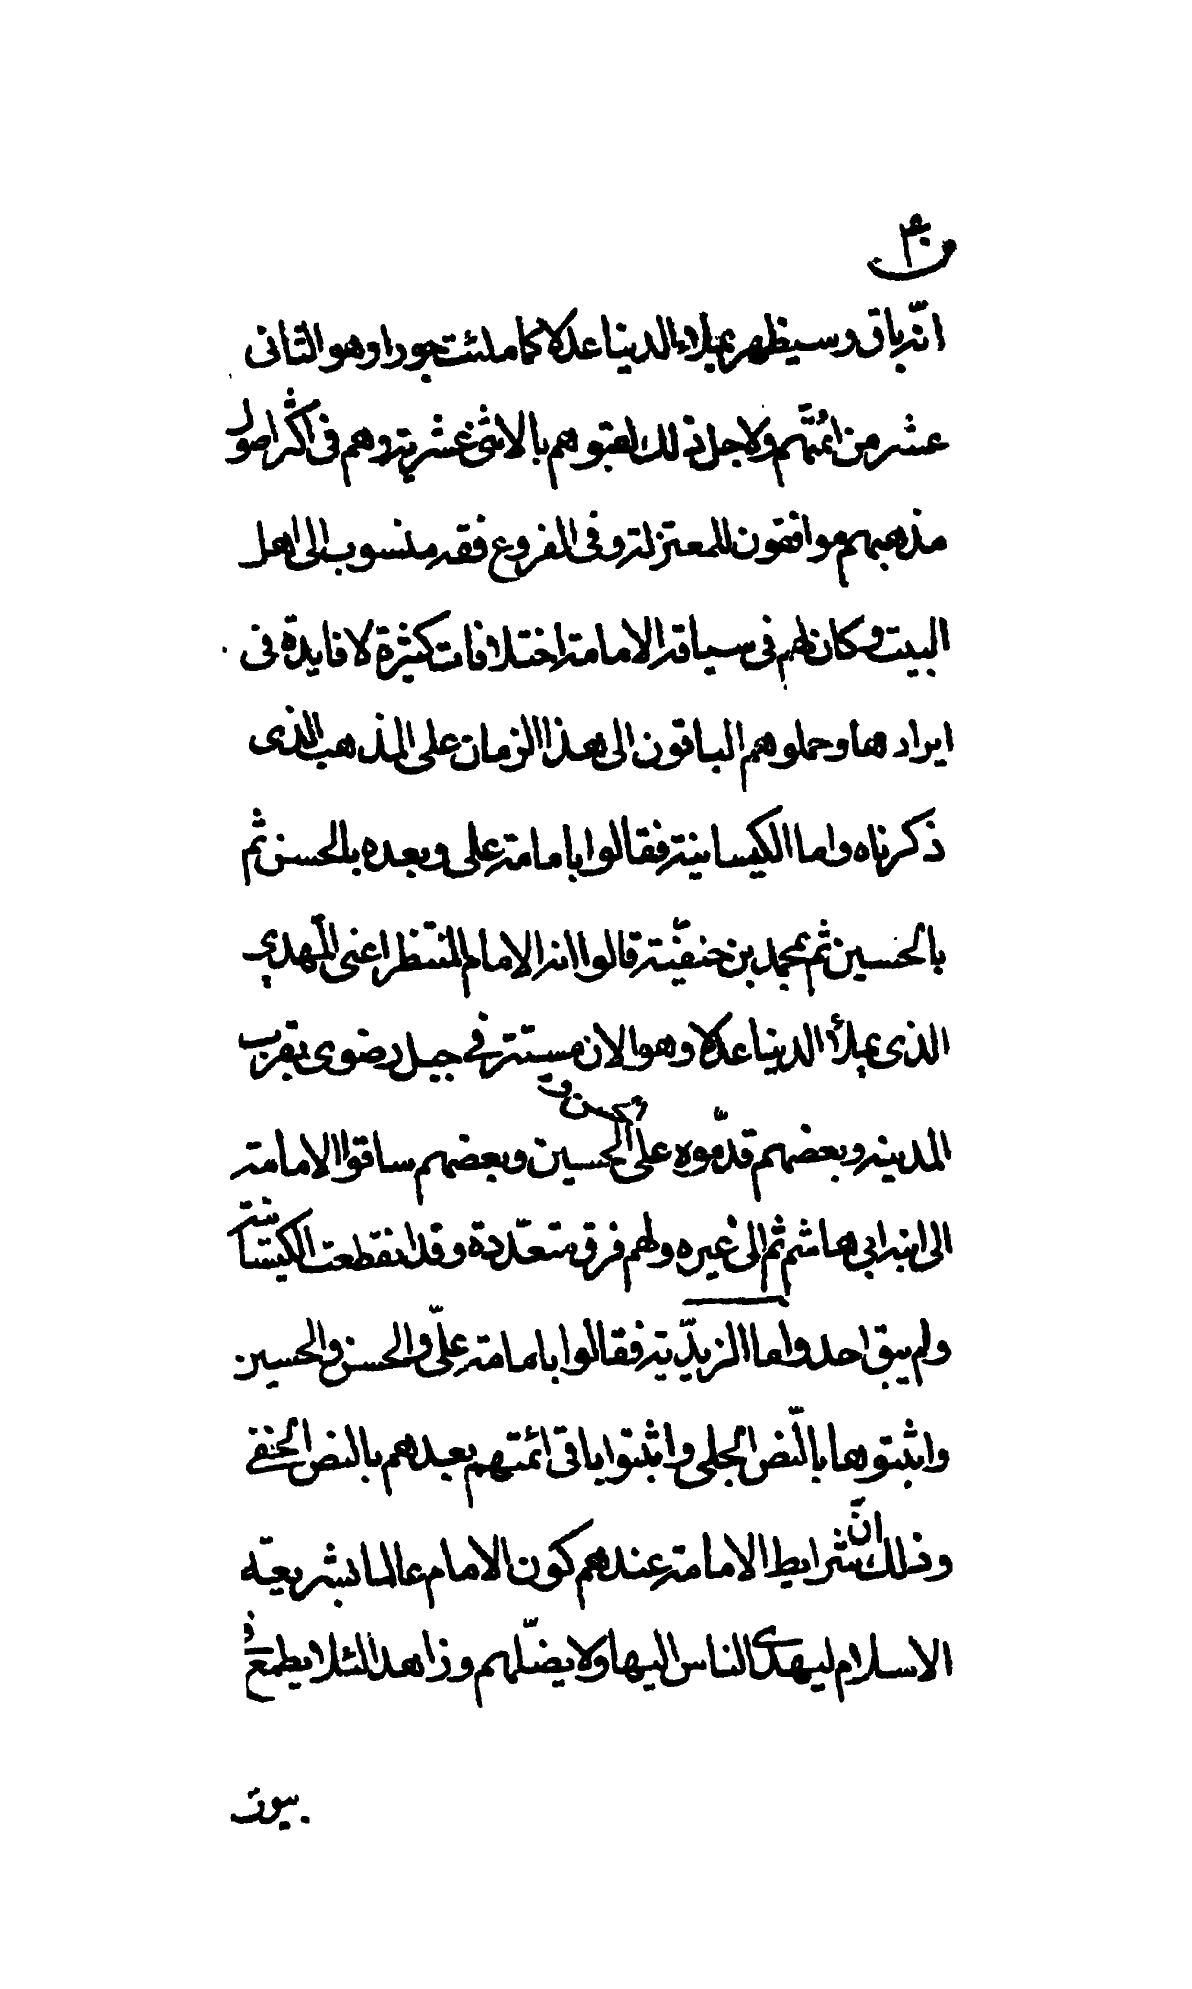 ٣٠
انّه باق وسيظهر يملاء الدنيا عدلا كما ملئت جورا وهو الثانى
عشر من ائمّتهم ولاجل ذلك لقبوهم بالاثنى عشرية وهم فى اكثر اصول
مذهبهم موافقون للمعتزلة وفى الفروع فقه منسوب الى اهل
البيت وكان لهم فى سياقة الامامة اختلافات كثيرة لا فايدة فى
ايرادها وحملوهم الباقون الى هذا الزمان على المذهب الذى
ذكرناه واما الكيسانية فقالوا بامامة على وبعده بالحسن ثم
بالحسين ثم بمحمد بن حنفيّة قالوا انه الامام المنتظر اعنى المهدي
الذى يملأ الدنيا عدلا وهو الان مستتر فى جبل رضوى بقرب
المدينة وبعضهم قدّموه على الحسن و الحسين وبعضهم ساقوا الامامة
الى ابنه ابي هاشم ثم الى غيره ولهم فرق متعدّدة وقد انقطعت الكيسانية
ولم يبق احد واما الزيديّة فقالوا بامامة علىّ والحسن والحسين
واثبتوها بالنّص الجلى واثبتوا باقى ائمتهم بعدهم بالنص الخفى
وذلك انّ شرايط الامامة عندهم كون الامام عالما بشريعة
الاسلام ليهدى الناس اليها ولا يضلّهم وزاهدا لئلا يطمع فى
بيوت